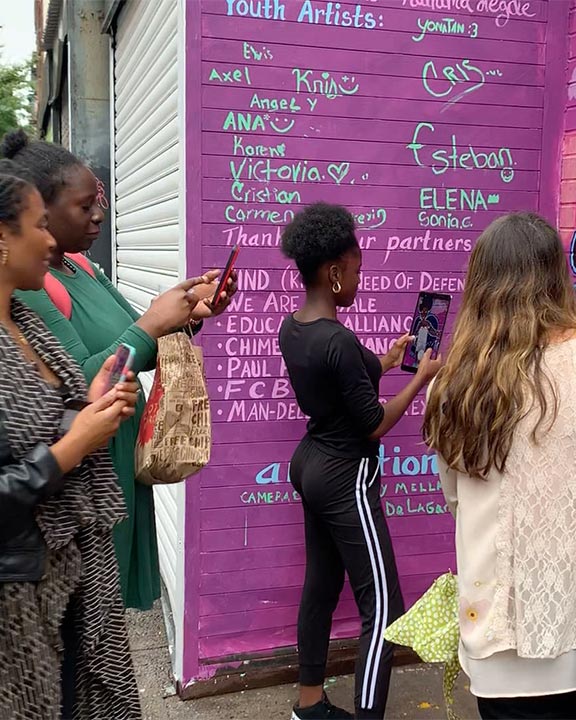 Youth Artists:
yonatan :3
Axel
CRIS
Angel y
ANA
Esteban
Karen
Victoria
Cristian
ELENA
Carmen
Sonia.c.
Thank our partners
KIND (K NEED OF DEFEN
• WE ARE ALE
• EDUCA ALLIANC
• CHIME
• PAUL
• FCB
• MAN-DEL
a tion
CAMERA MELL
De Lago